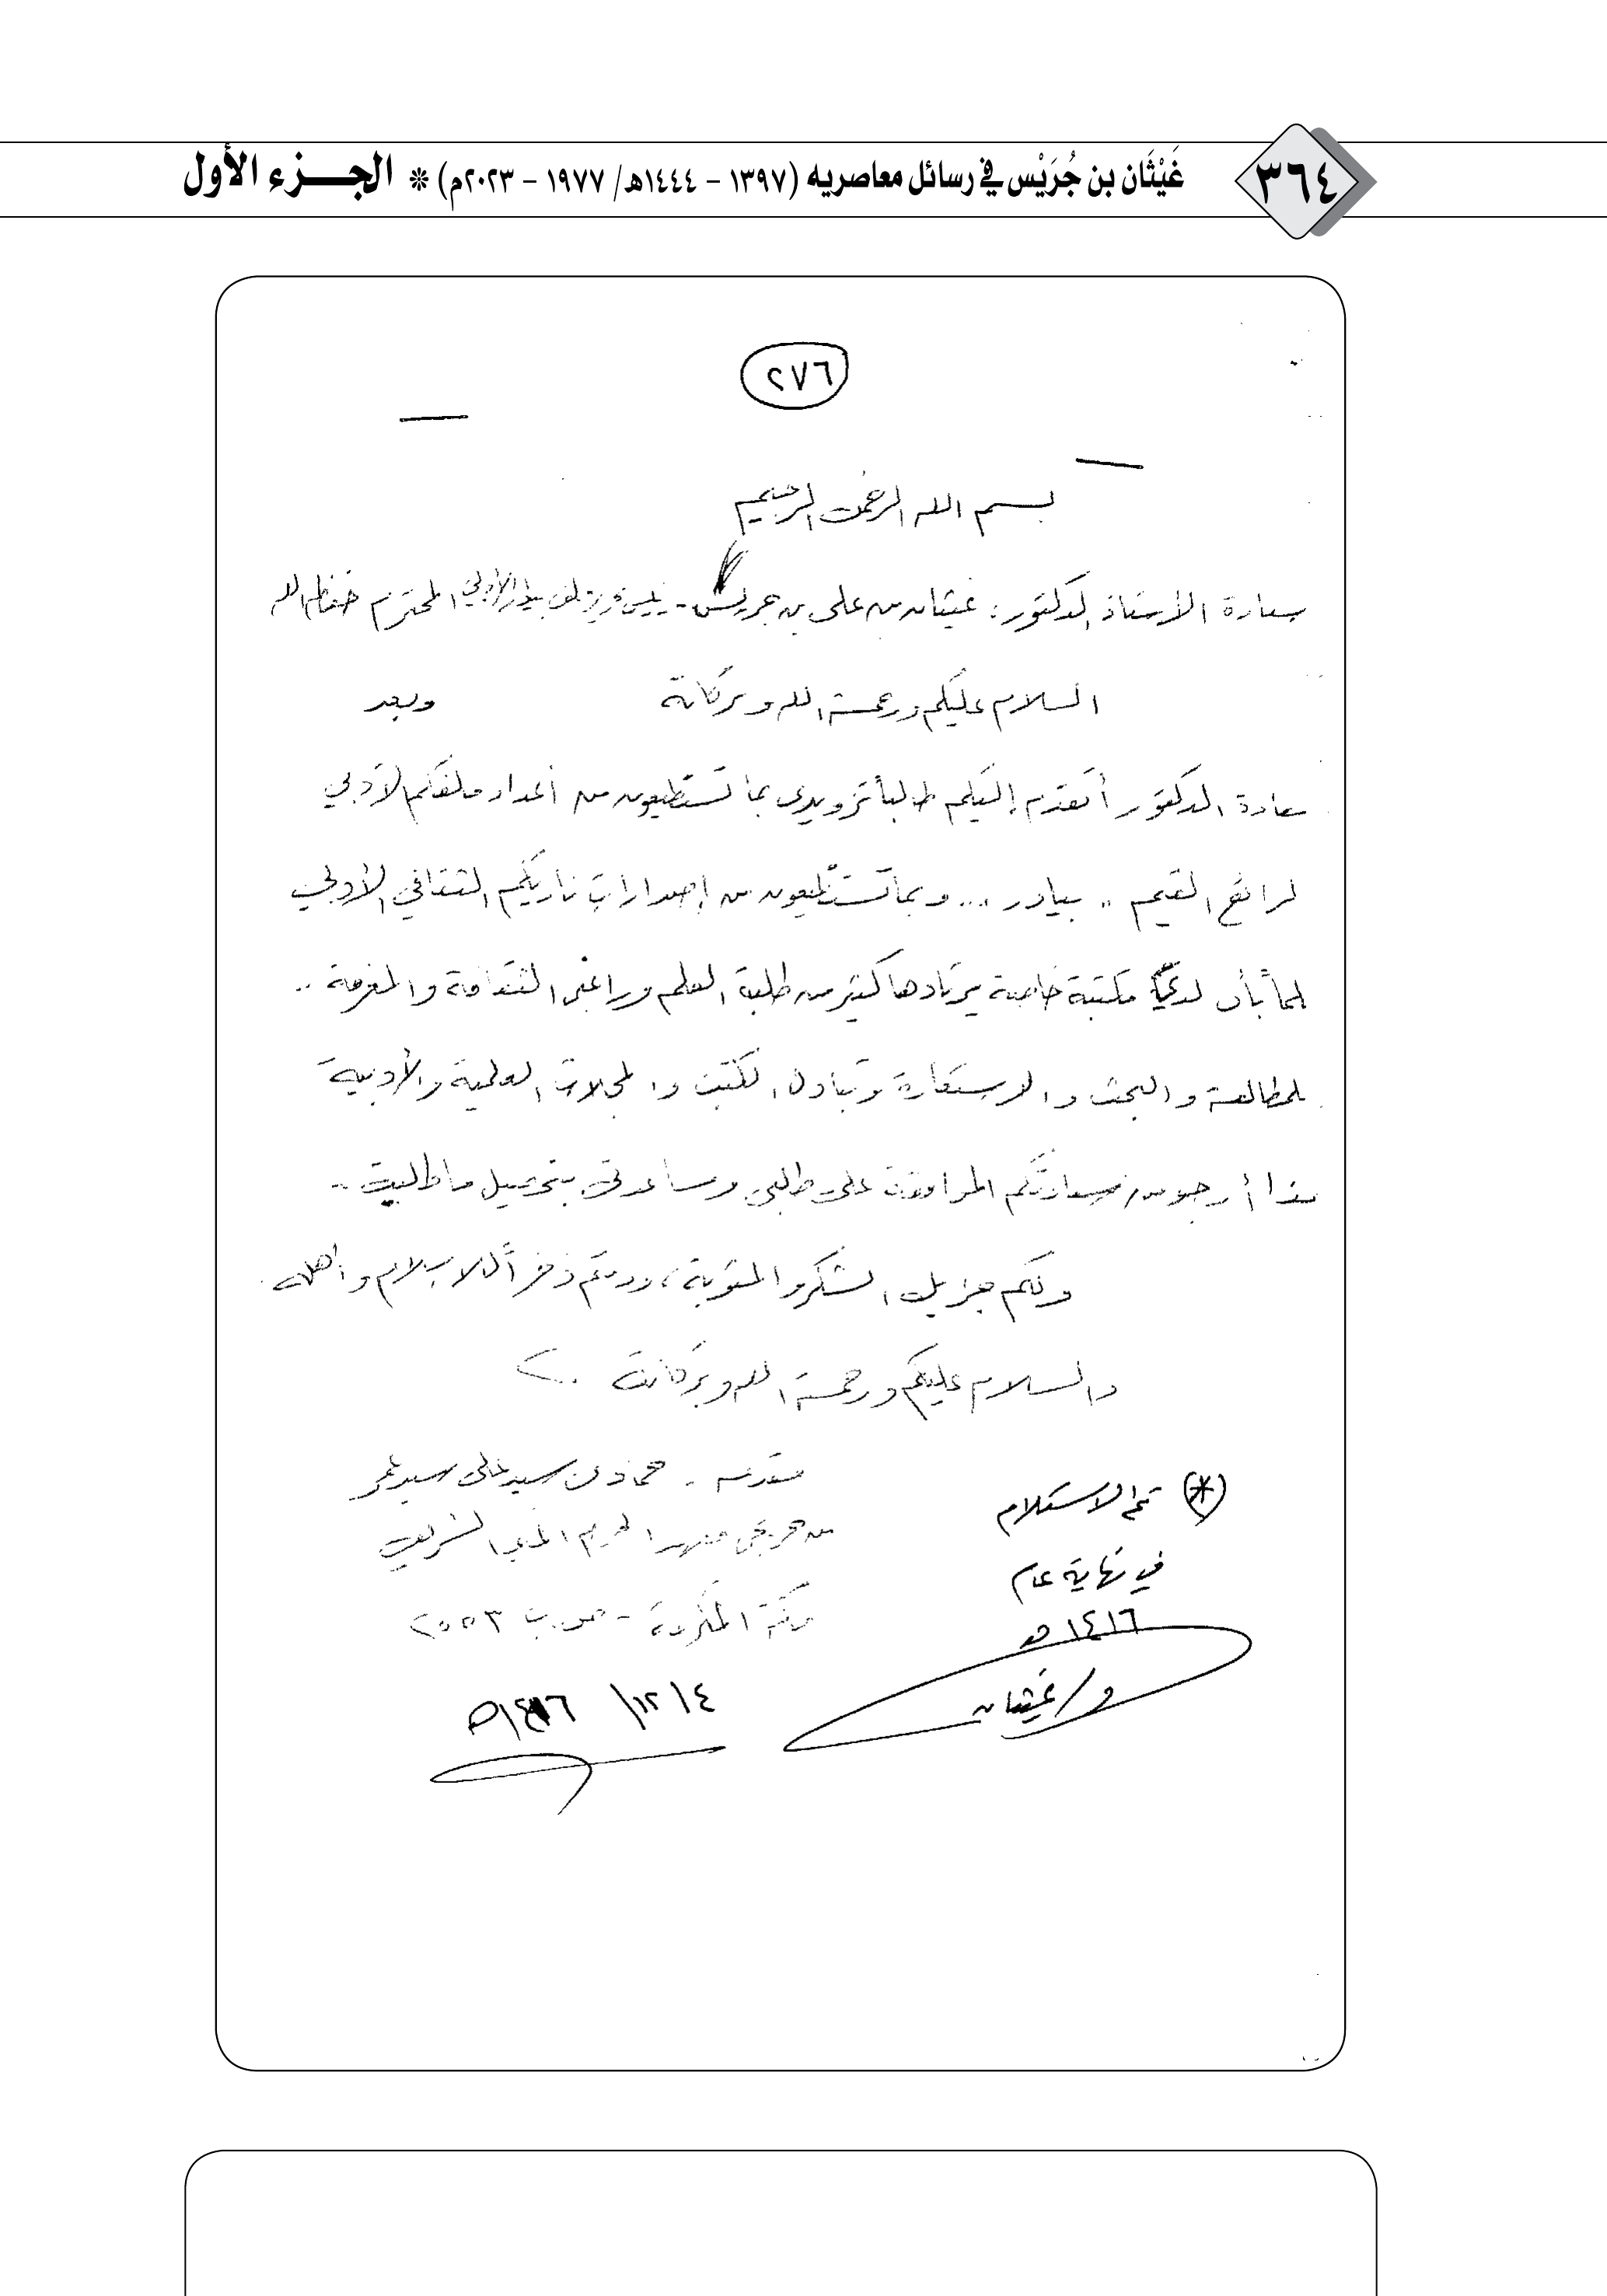 ٣٦٤
غَيْثَان بن جُرَيْس في رسائل معاصريه (١٣٩٧ - ١٤٤٤هـ/ ١٩٧٧ - ٢٠٢٣م) * الجزء الأول
٢٧٦
بسم الله الرحمن الرحيم
سعادة الأستاذ الدكتور: غيثان بن علي بن جريس - رئيس تحرير ملف بيادر الأدبي المحترم حفظه الله
السلام عليكم ورحمة الله وبركاته وبعد
سعادة الدكتور أتقدم إليكم طالباً تزويدي بما تستطيعون من أعداد ملفكم الأدبي
الرائع القيم .. بيادر ... وبما تستطيعون من إصدارات ناديكم الثقافي الأدبي
علماً بأن لدي مكتبة خاصة يرتادها كثير من طلبة العلم وراغبي الثقافة والمعرفة ..
للمطالعة والبحث والاستعارة وتبادل الكتب والمجلات العلمية والأدبية
هذا أرجو من سعادتكم الموافقة على طلبي ومساعدتي بتحصيل ما طلبت ..
ولكم جزيل الشكر والمثوبة، ودمتم ذخراً للإسلام وأهله
والسلام عليكم ورحمة الله وبركاته
مقدمه - حماد بن سيد علي سيد عمر
من خريجي معهد الحرم المكي الشريف
مكة المكرمة - ص.ب ٢٥٥٣
٤/ ١٢/ ١٤١٦هـ
(*) تم الاستلام
في نهاية عام
١٤١٦هـ
د/ غيثان